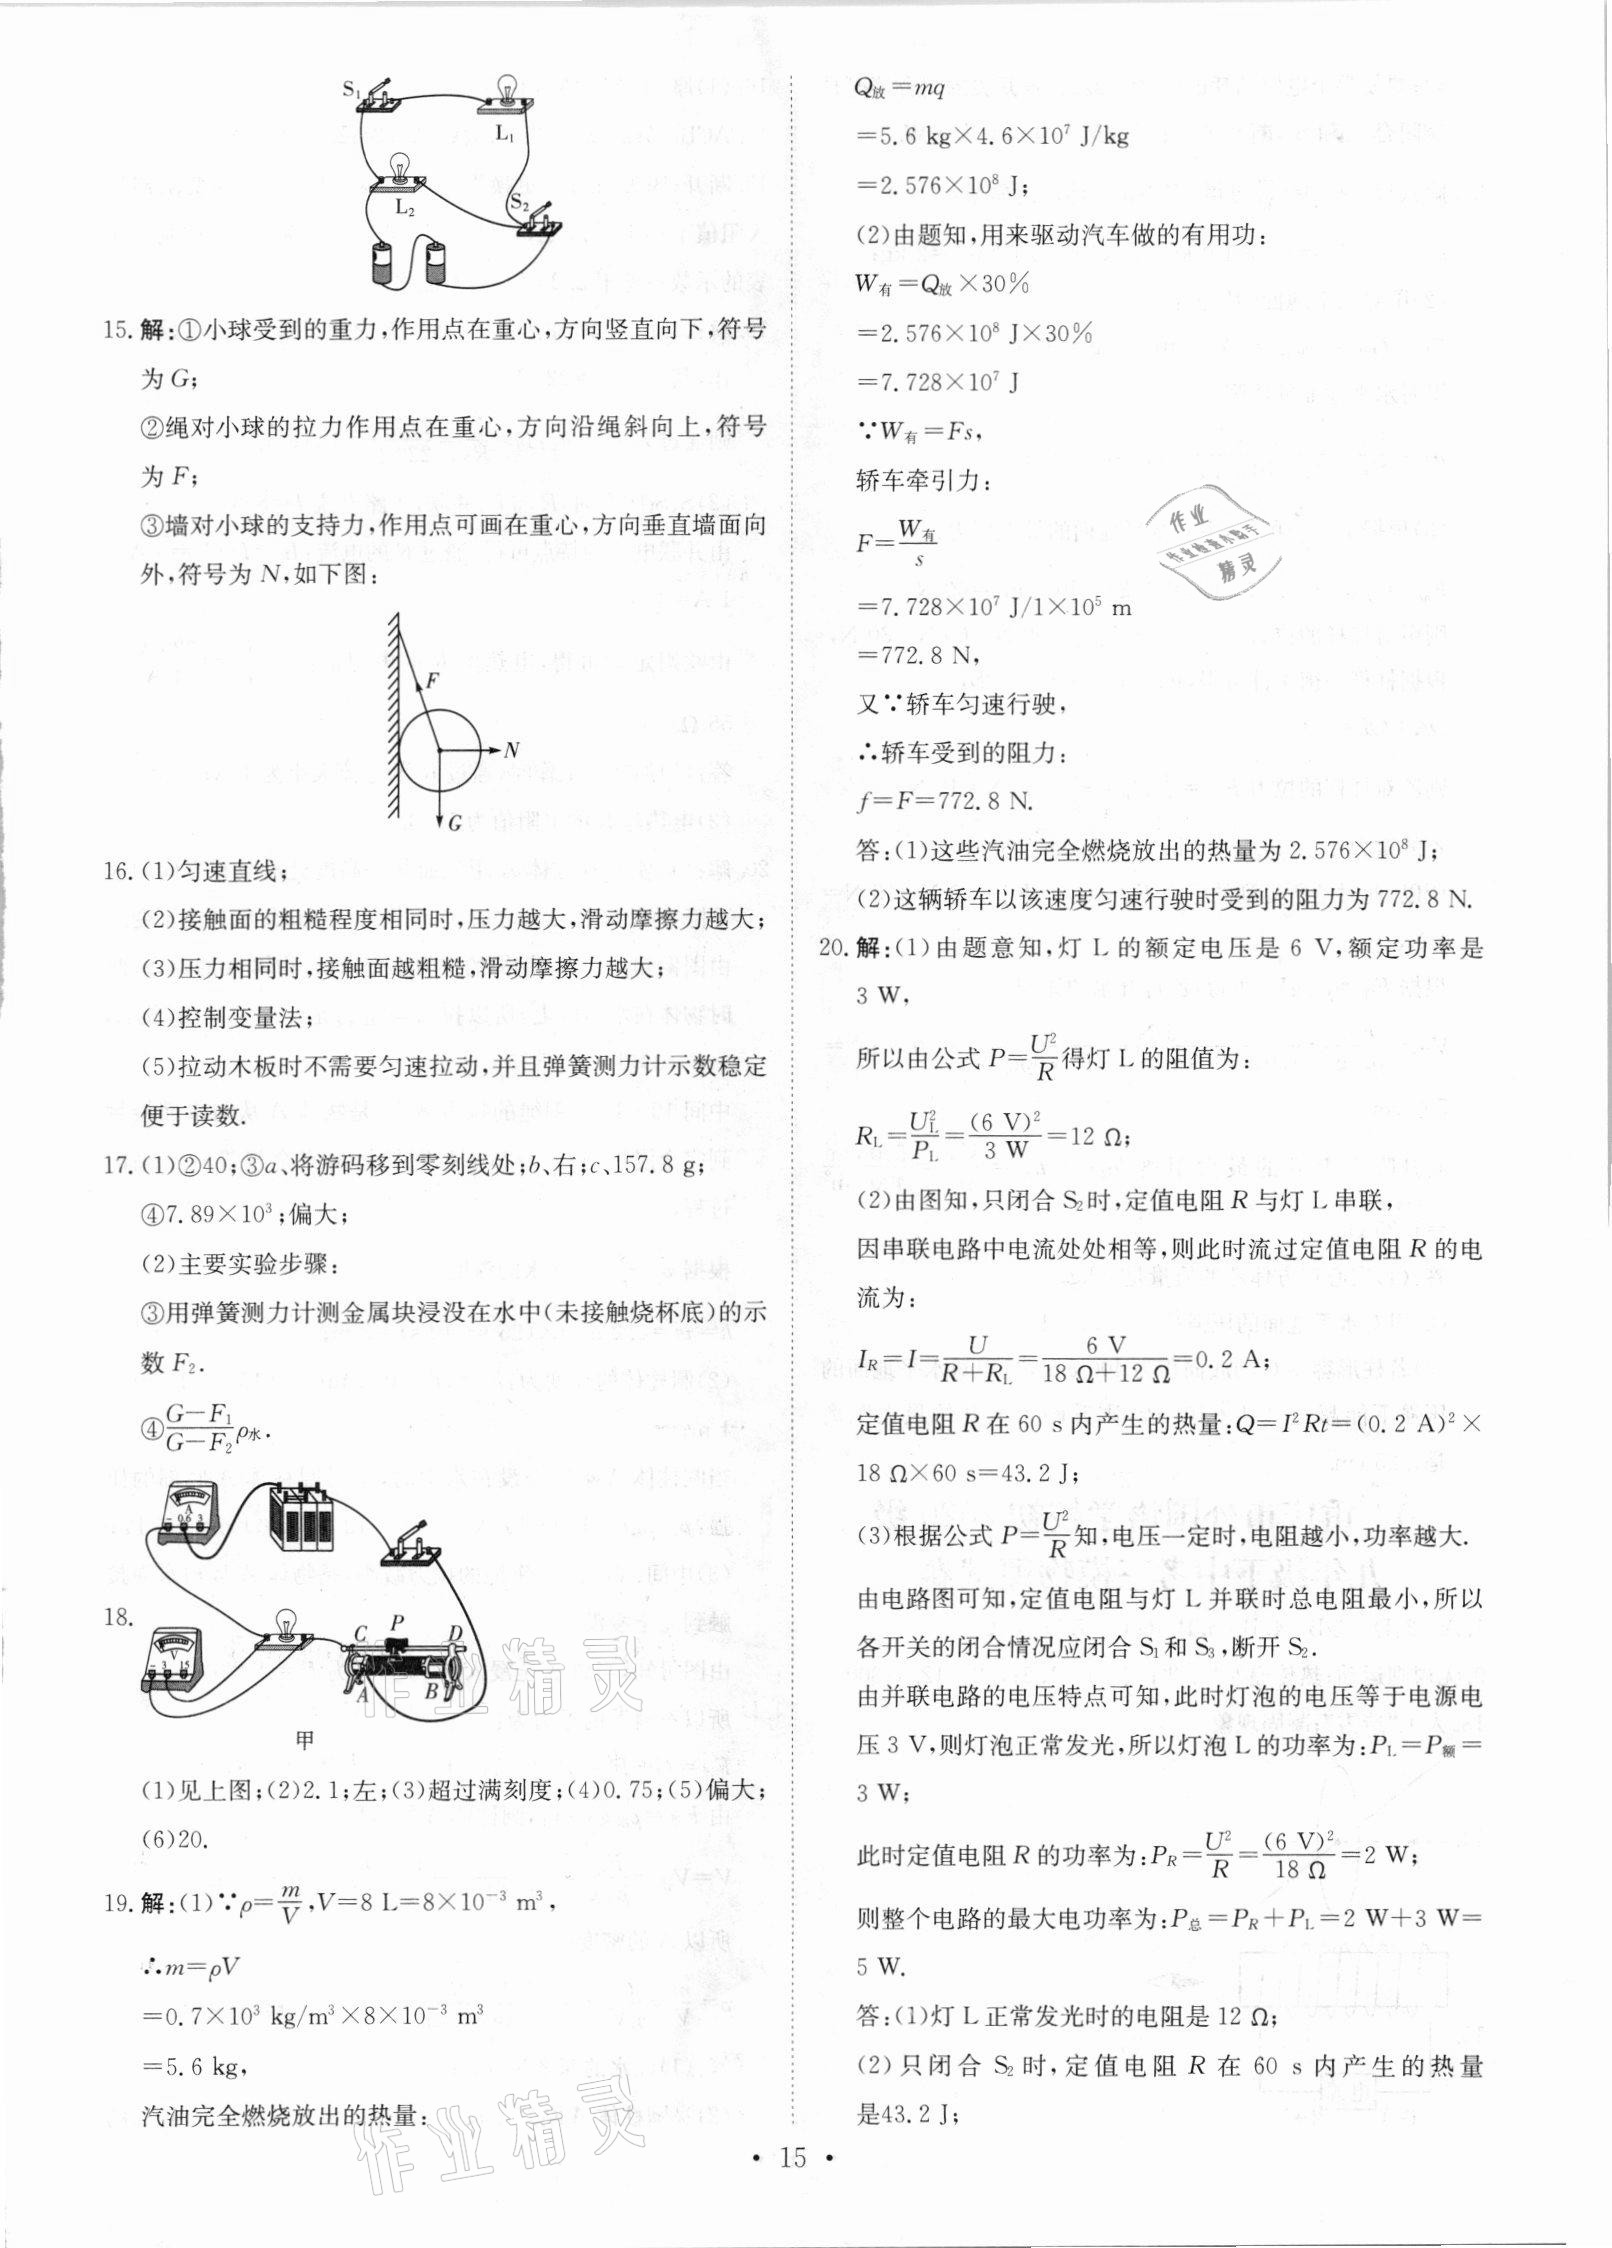 S₁
L₁
L₂
S₂
15. 解:①小球受到的重力,作用点在重心,方向竖直向下,符号
为 G;
②绳对小球的拉力作用点在重心,方向沿绳斜向上,符号
为 F;
③墙对小球的支持力,作用点可画在重心,方向垂直墙面向
外,符号为 N,如下图:
F
N
G
16. (1)匀速直线;
(2)接触面的粗糙程度相同时,压力越大,滑动摩擦力越大;
(3)压力相同时,接触面越粗糙,滑动摩擦力越大;
(4)控制变量法;
(5)拉动木板时不需要匀速拉动,并且弹簧测力计示数稳定
便于读数.
17. (1)②40;③a、将游码移到零刻线处;b、右;c、157.8 g;
④7.89×10³;偏大;
(2)主要实验步骤:
③用弹簧测力计测金属块浸没在水中(未接触烧杯底)的示
数 F₂.
④(G−F₁)/(G−F₂)ρ水.
A
− 0.6 3
18.
V
− 3 15
C P D
A B
甲
(1)见上图;(2)2.1;左;(3)超过满刻度;(4)0.75;(5)偏大;
(6)20.
19. 解:(1)∵ρ=m/V,V=8 L=8×10⁻³ m³,
∴m=ρV
=0.7×10³ kg/m³×8×10⁻³ m³
=5.6 kg,
汽油完全燃烧放出的热量:
Q放=mq
=5.6 kg×4.6×10⁷ J/kg
=2.576×10⁸ J;
(2)由题知,用来驱动汽车做的有用功:
W有=Q放×30%
=2.576×10⁸ J×30%
=7.728×10⁷ J
∵W有=Fs,
轿车牵引力:
F=W有/s
=7.728×10⁷ J/1×10⁵ m
=772.8 N,
又∵轿车匀速行驶,
∴轿车受到的阻力:
f=F=772.8 N.
答:(1)这些汽油完全燃烧放出的热量为 2.576×10⁸ J;
(2)这辆轿车以该速度匀速行驶时受到的阻力为 772.8 N.
20. 解:(1)由题意知,灯 L 的额定电压是 6 V,额定功率是
3 W,
所以由公式 P=U²/R得灯 L 的阻值为:
R_L=U_L²/P_L=(6 V)²/3 W=12 Ω;
(2)由图知,只闭合 S₂时,定值电阻 R 与灯 L 串联,
因串联电路中电流处处相等,则此时流过定值电阻 R 的电
流为:
I_R=I=U/(R+R_L)=6 V/(18 Ω+12 Ω)=0.2 A;
定值电阻 R 在 60 s 内产生的热量:Q=I²Rt=(0.2 A)²×
18 Ω×60 s=43.2 J;
(3)根据公式 P=U²/R知,电压一定时,电阻越小,功率越大.
由电路图可知,定值电阻与灯 L 并联时总电阻最小,所以
各开关的闭合情况应闭合 S₁和 S₃,断开 S₂.
由并联电路的电压特点可知,此时灯泡的电压等于电源电
压 3 V,则灯泡正常发光,所以灯泡 L 的功率为:P_L=P额=
3 W;
此时定值电阻 R 的功率为:P_R=U²/R=(6 V)²/18 Ω=2 W;
则整个电路的最大电功率为:P总=P_R+P_L=2 W+3 W=
5 W.
答:(1)灯 L 正常发光时的电阻是 12 Ω;
(2)只闭合 S₂时,定值电阻 R 在 60 s 内产生的热量
是43.2 J;
作业
作业检查小助手
精灵
作业精灵
作业精灵
• 15 •